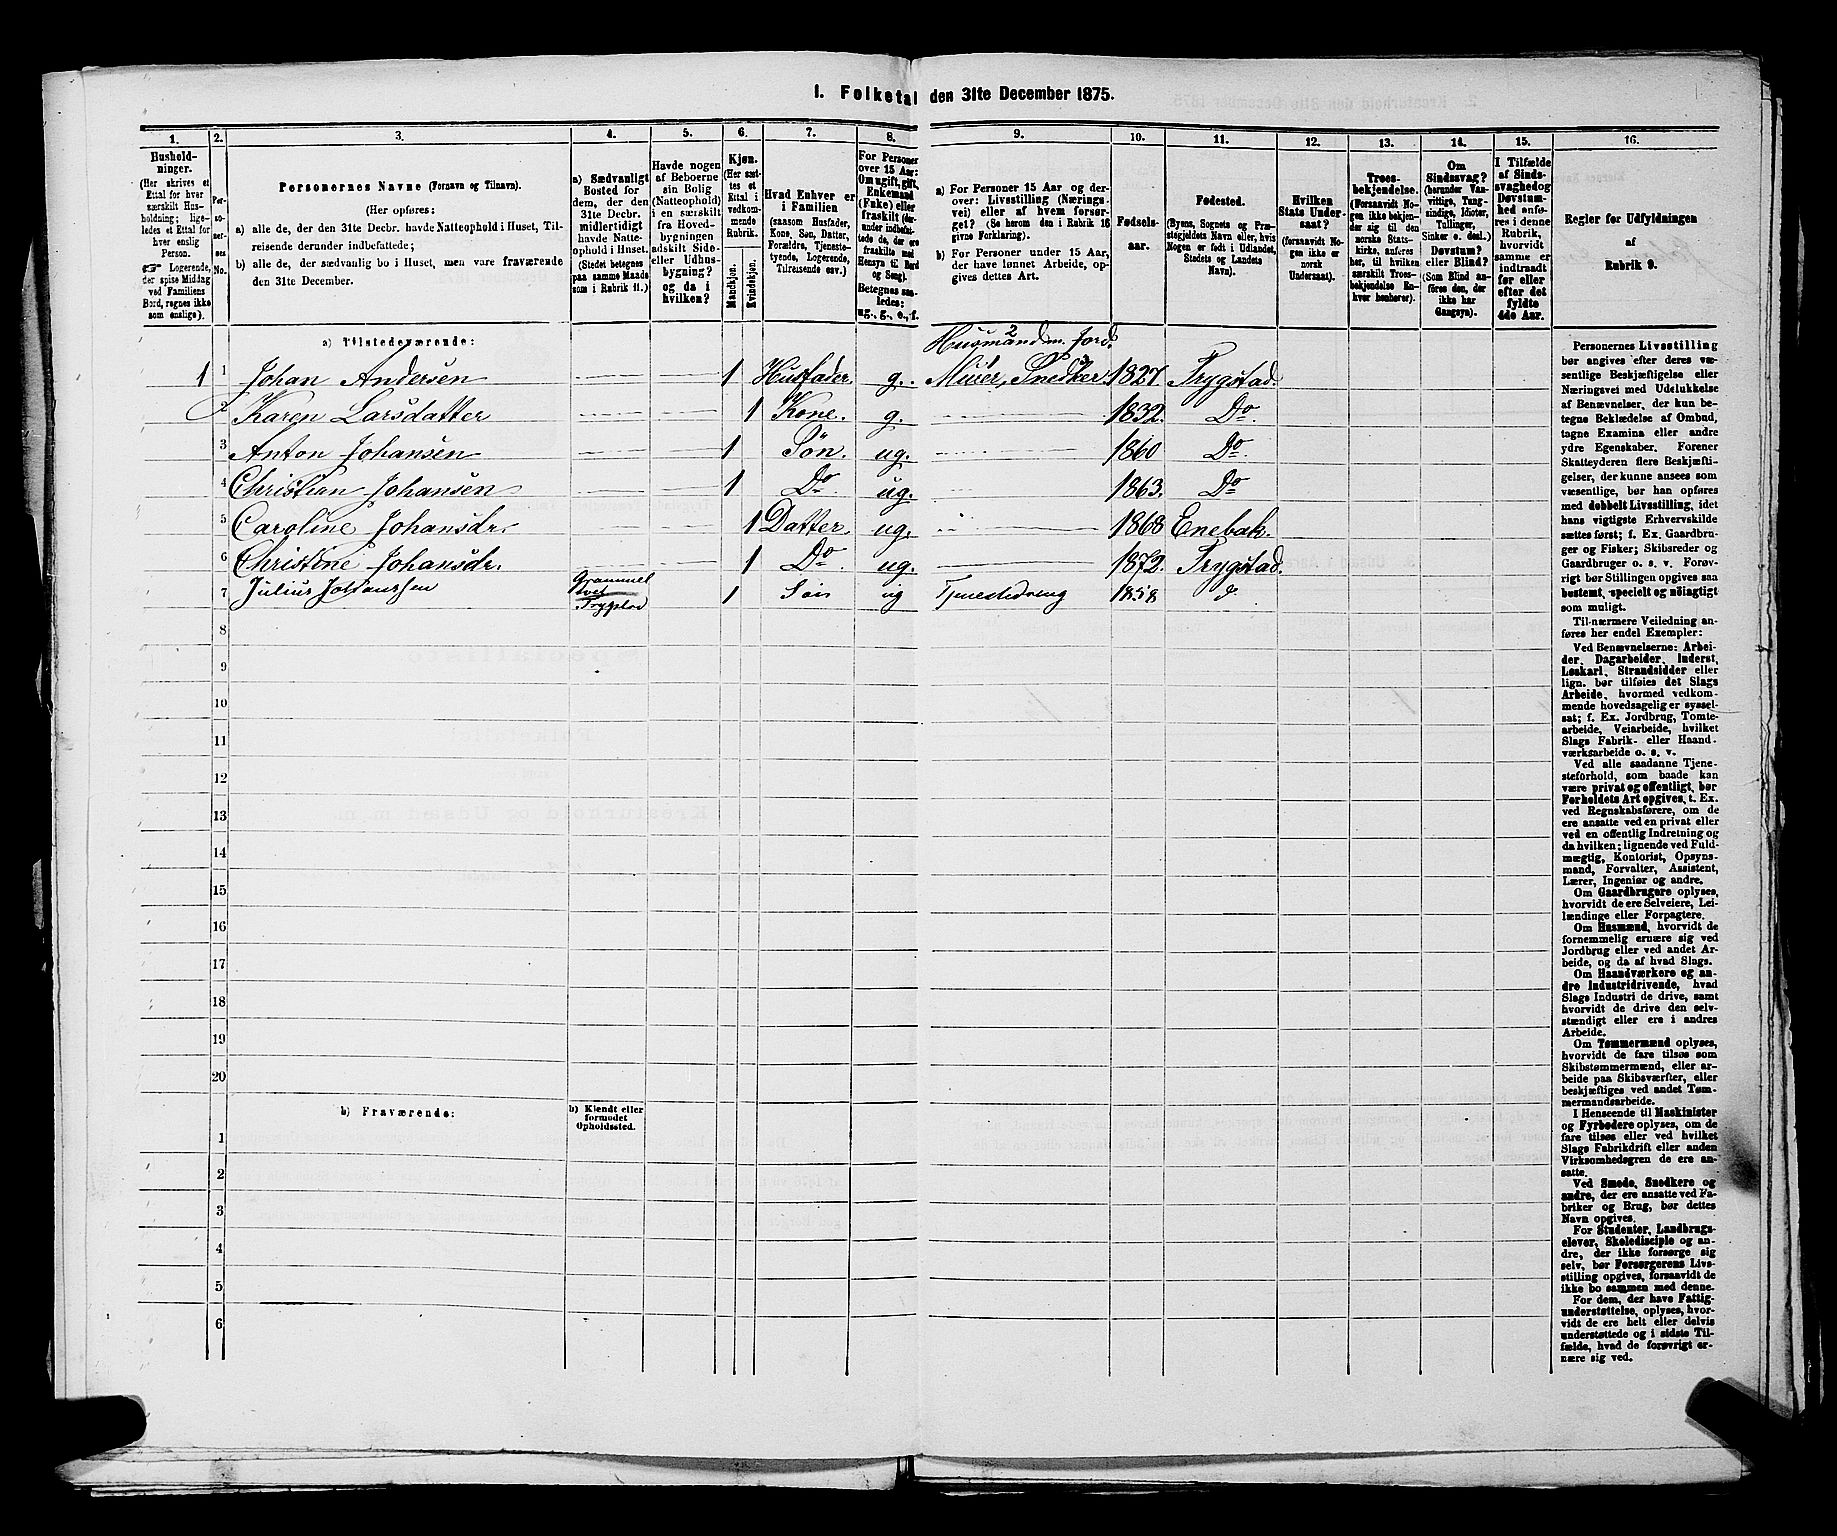 1. Folketal den 31te December 1875.
1. 2. 3. 4. 5. 6. 7. 8. 9. 10. 11. 12. 13. 14. 15. 16.
Hushold-
ninger.
(Her skrives et
Ettal for hver
særskilt Hus-
holdning; lige-
ledes et Ettal for
hver enslig
Person.
☞ Logerende,
der spise Middag
ved Familiens
Bord, regnes ikke
som enslige).
Per-
so-
ner-
nes
No.
Personernes Navne (Fornavn og Tilnavn).
(Her opføres:
a) alle de, der den 31te Decbr. havde Natteophold i Huset, Til-
reisende derunder indbefattede;
b) alle de, der sædvanlig bo i Huset, men vare fraværende
den 31te December.
a) Sædvanligt
Bosted for
dem, der den
31te Decbr.
midlertidigt
havde Natte-
ophold i Huset.
(Stedet betegnes
paa samme Maade
som i Rubrik 11.)
Havde nogen
af Beboerne
sin Bolig
(Natteophold)
i en særskilt
fra Hoved-
bygningen
adskilt Side-
eller Udhus-
bygning?
og da i
hvilken?
Kjøn.
(Her sæt-
tes et
Ettal i
vedkom-
mende
Rubrik.
Mandkjøn.
Kvindekjøn.
Hvad Enhver er
i Familien
(saasom Husfader,
Kone, Søn, Datter,
Forældre, Tjeneste-
tyende, Logerende,
Tilreisende osv.)
For Personer
over 15 Aar:
Om ugift, gift,
Enkemand
(Enke) eller
fraskilt (der-
under indbefat-
tede de, der ere
fraskilte med
Hensyn til Bord
og Seng).
Betegnes saa-
ledes:
ug., g., e., f.
a) For Personer 15 Aar og der-
over: Livsstilling (Nærings-
vei) eller af hvem forsør-
get? (Se herom den i Rubrik 16
givne Forklaring).
b) For Personer under 15 Aar,
der have lønnet Arbeide, op-
gives dettes Art.
Fødsels-
aar.
Fødested.
(Byens, Sognets og Præ-
stegjeldets Navn eller, hvis
Nogen er født i Udlandet,
Stedets og Landets
Navn).
Hvilken
Stats Under-
saat?
(forsaavidt No-
gen ikke er
norsk
Undersaat).
Troes-
bekjendelse.
(Forsaavidt No-
gen ikke bekjen-
der sig til den
norske Stats-
kirke, anføres
her, til hvilken
særskilt Troes-
bekjendelse En-
hver henhører).
Om
Sindssvag?
(herunder Van-
vittige, Tung-
sindige, Idioter,
Tullinger,
Sinker o. desl.)
Døvstum?
eller Blind?
(Som Blind an-
føres den, der
ikke har
Gangsyn).
I Tilfælde
af Sinds-
svaghed og
Døvstum-
hed anfø-
res i denne
Rubrik,
hvorvidt
samme er
indtraadt
før eller
efter det
fyldte
4de Aar.
Regler for Udfyldningen
af
Rubrik 9.
a) Tilstedeværende:
Husmand m. Jord.
1 1 Johan Andersen 1 Husfader. g. Murer, Snedker. 1827. Trygstad.
2 Karen Larsdatter 1 Kone. g. 1832. Do.
3 Anton Johansen 1 Søn. ug. 1860 Do.
4 Christian Johansen 1 Do. ug. 1863. Do
5 Caroline Johansdr. 1 Datter. ug. 1868 Enebak.
6 Christine Johansdr. 1 Do ug. 1872. Trygstad.
7 Julius Johanssen Trygstad 1 Søn ug Tjenestedreng 1858 d
8
9
10
11
12
13
14
15
16
17
18
19
20
b) Fraværende:
b) Kjendt eller
formodet
Opholdssted.
1
2
3
4
5
6
Personernes Livsstilling
bør angives efter deres væ-
sentlige Beskjæftigelse eller
Næringsvei med Udelukkelse
af Benævnelser, der kun be-
tegne Beklædelse af Ombud,
tagne Examina eller andre
ydre Egenskaber. Forener
Skatteyderen flere Beskjæfti-
gelser, der kunne ansees som
væsentlige, bør han opføres
med dobbelt Livsstilling, idet
hans vigtigste Erhvervskilde
sættes først; f. Ex. Gaardbru-
ger og Fisker; Skibsreder og
Gaardbruger o. s. v. Forøv-
rigt bør Stillingen opgives saa
bestemt, specielt og nøiagtigt
som muligt.
Til nærmere Veiledning an-
føres her endel Exempler:
Ved Benævnelserne: Arbei-
der, Dagarbeider, Inderst,
Løskarl, Strandsidder eller
lign. bør tilføies det Slags
Arbeide, hvormed vedkom-
mende hovedsagelig er syssel-
sat; f. Ex. Jordbrug, Tomte-
arbeide, Veiarbeide, hvilket
Slags Fabrik- eller Haand-
værksarbeide o. s. v.
Ved alle saadanne Tjene-
steforhold, som baade kan
være privat og offentligt, bør
Forholdets Art opgives, t. Ex.
ved Regnskabsførere, om de
ere ansatte ved en privat eller
ved en offentlig Indretning og
da hvilken; lignende ved Fuld-
mægtig, Kontorist, Opsyns-
mand, Forvalter, Assistent,
Lærer, Ingeniør og andre.
Om Gaardbrugere oplyses,
hvorvidt de ere Selveiere, Lei-
lændinge eller Forpagtere.
Om Husmænd, hvorvidt de
fornemmelig ernære sig ved
Jordbrug eller ved andet Ar-
beide, og da af hvad Slags.
Om Haandværkere og an-
dre Industridrivende, hvad
Slags Industri de drive, samt
hvorvidt de drive den selv-
stændigt eller ere i andres
Arbeide.
Om Tømmermænd oplyses,
hvorvidt de fare tilsøs som
Skibstømmermænd, eller ar-
beide paa Skibsværfter, eller
beskjæftiges ved andet Tøm-
mermandsarbeide.
I Henseende til Maskinister
og Fyrbødere oplyses, om de
fare tilsøs eller ved hvilket
Slags Fabrikdrift eller anden
Virksomhedsgren de ere an-
satte.
Ved Smede, Snedkere og
andre, der ere ansatte ved Fa-
briker og Brug, bør dettes
Navn opgives.
For Studenter, Landbrugs-
elever, Skoledisciple og an-
dre, der ikke forsørge sig
selv, bør Forsørgerens Livs-
stilling opgives, forsaavidt de
ikke bo sammen med denne.
For dem, der have Fattig-
understøttelse, oplyses, hvor-
vidt de ere helt eller delvis
understøttede og i sidste Til-
fælde, hvad de forøvrigt er-
nære sig ved.